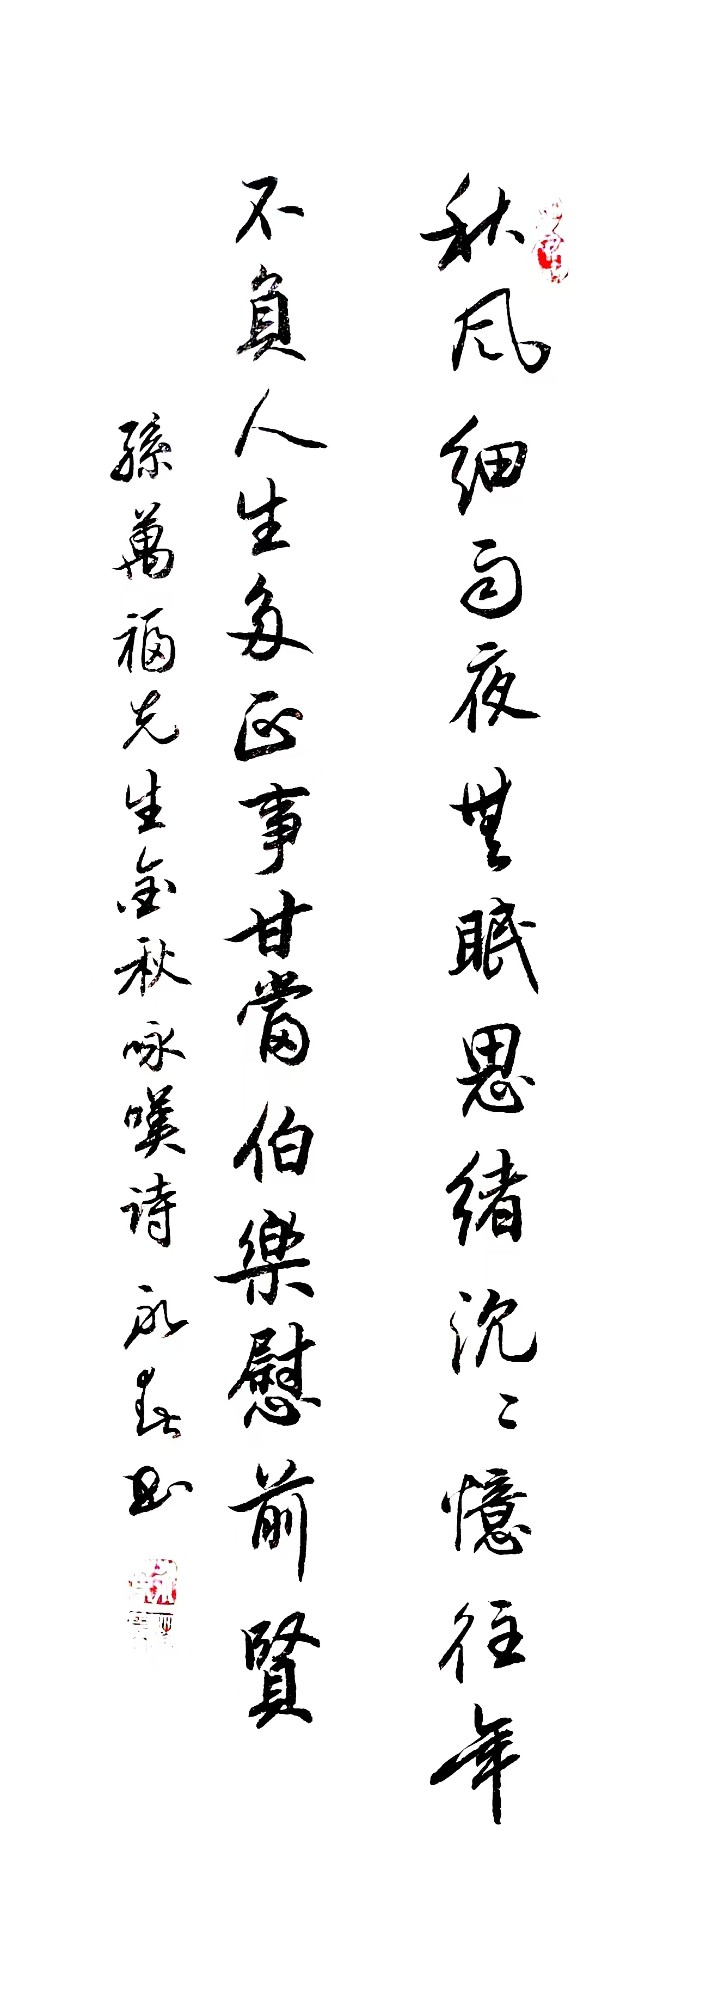 秋风细雨夜無眠思绪沉〻憶往年
不負人生多正事甘當伯樂慰前賢
孫萬福先生金秋咏嘆诗 永春书